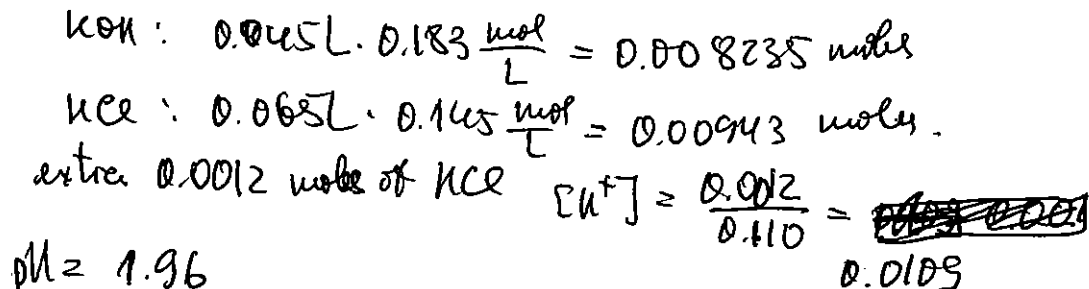 KOH: 0.045L · 0.183 mol/L = 0.008235 moles
HCl: 0.065L · 0.145 mol/L = 0.00943 moles.
extra 0.0012 moles of HCl [H⁺] = 0.0012/0.110 =
0.0109
pH = 1.96